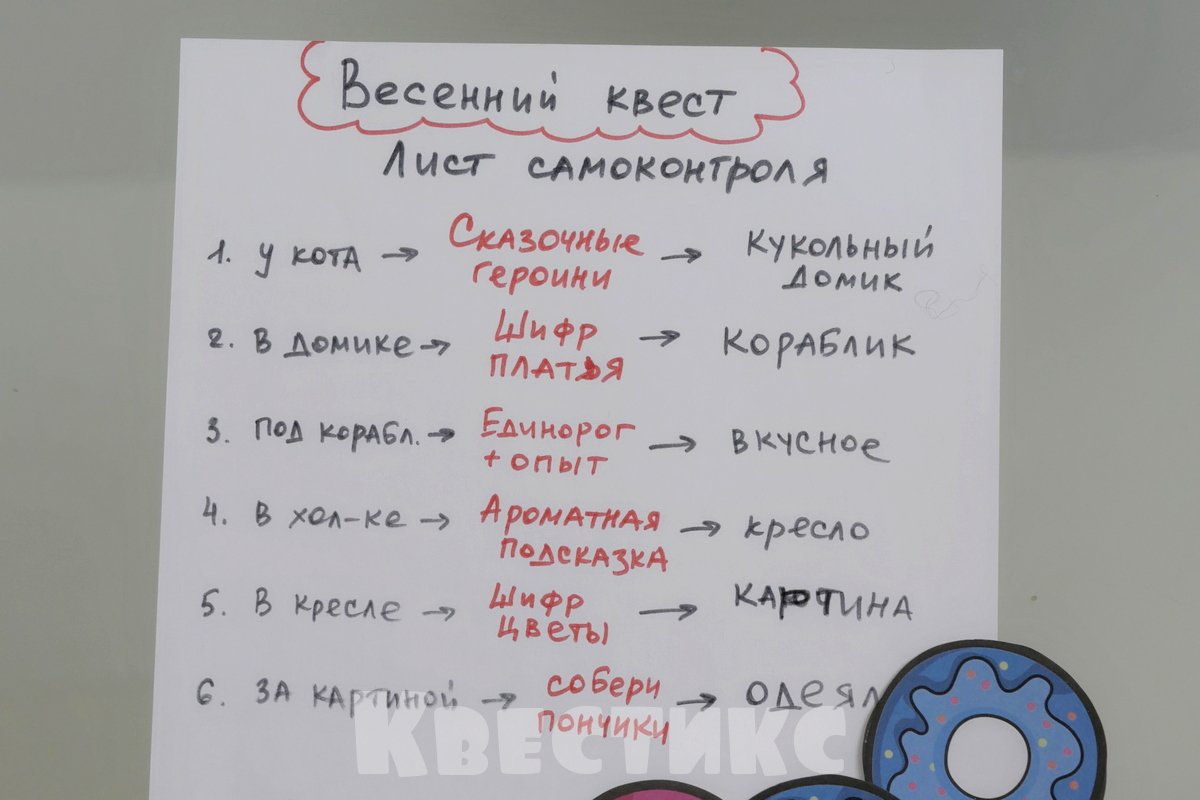 Весенний квест
Лист самоконтроля
1. У кота → Сказочные героини → Кукольный домик
2. В домике → Шифр платья → Кораблик
3. Под корабл. → Единорог + опыт → вкусное
4. В хол-ке → Ароматная подсказка → кресло
5. В кресле → Шифр цветы → Картина
6. За картиной → собери пончики →
Квестикс